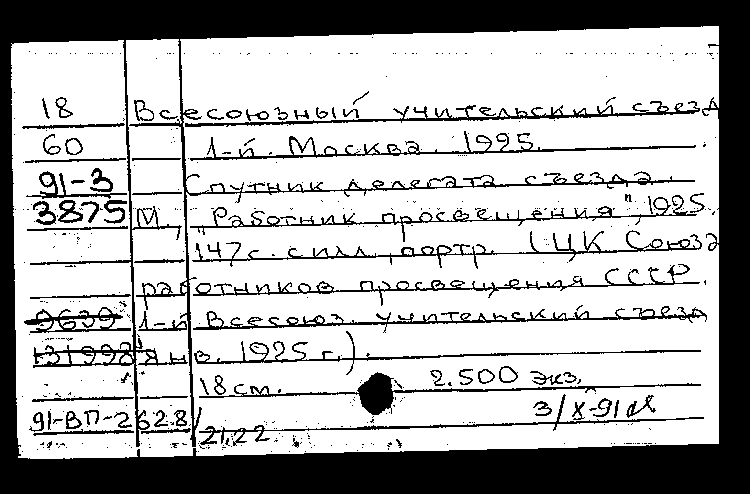 18 Всесоюзный учительский съезд
60 1-й. Москва. 1925.
91-3 Спутник делегата съезда.
3875 М., "Работник просвещения", 1925.
147 с. с илл., портр. (ЦК Союза
работников просвещения СССР.
9639 1-й Всесоюз. учительский съезд
131998 янв. 1925 г.).
18 см. 2.500 экз.
91-ВП-262.8/ 3/X-91
21,22